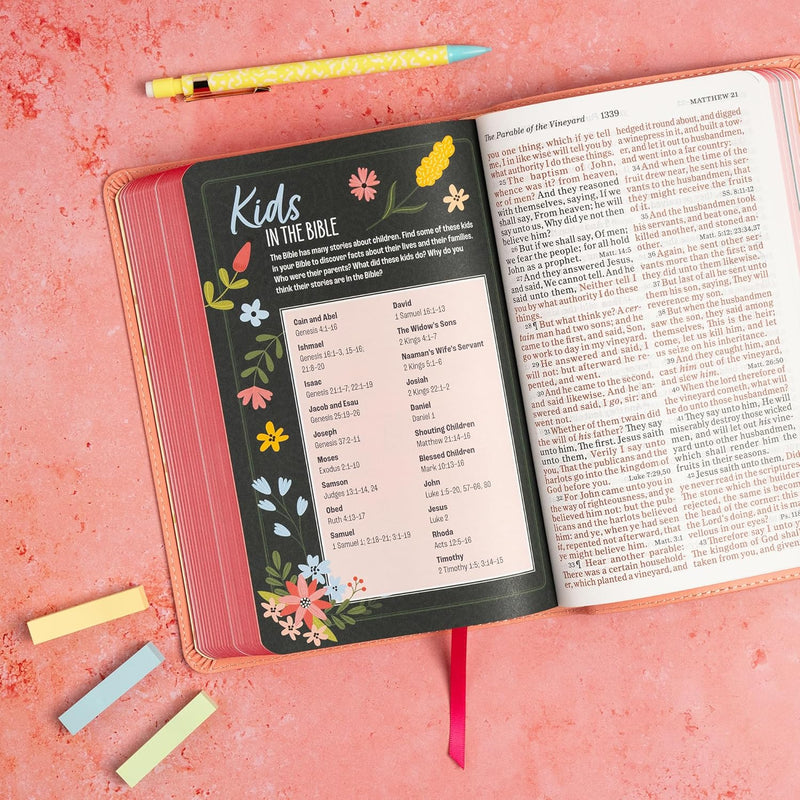 Kids
IN THE BIBLE
The Bible has many stories about children. Find some of these kids
in your Bible to discover facts about their lives and their families.
Who were their parents? What did these kids do? Why do you
think their stories are in the Bible?
Cain and Abel
Genesis 4:1-16
Ishmael
Genesis 16:1-3, 15-16;
21:8-20
Isaac
Genesis 21:1-7; 22:1-19
Jacob and Esau
Genesis 25:19-26
Joseph
Genesis 37:2-11
Moses
Exodus 2:1-10
Samson
Judges 13:1-14, 24
Obed
Ruth 4:13-17
Samuel
1 Samuel 1; 2:18-21; 3:1-19
David
1 Samuel 16:1-13
The Widow's Sons
2 Kings 4:1-7
Naaman's Wife's Servant
2 Kings 5:1-6
Josiah
2 Kings 22:1-2
Daniel
Daniel 1
Shouting Children
Matthew 21:14-16
Blessed Children
Mark 10:13-16
John
Luke 1:5-20, 57-66, 80
Jesus
Luke 2
Rhoda
Acts 12:5-16
Timothy
2 Timothy 1:5; 3:14-15
The Parable of the Vineyard
1339
MATTHEW 21
you one thing, which if ye tell
me, I in like wise will tell you by
what authority I do these things.
25 The baptism of John,
whence was it? from heaven,
or of men? And they reasoned
with themselves, saying, If we
shall say, From heaven; he will
say unto us, Why did ye not then
believe him?
26 But if we shall say, Of men;
we fear the people; for all hold
John as a prophet. Matt. 14:5
27 And they answered Jesus,
and said, We cannot tell. And he
said unto them, Neither tell I
you by what authority I do these
things.
28 ¶ But what think ye? A cer-
tain man had two sons; and he
came to the first, and said, Son,
go work to day in my vineyard.
29 He answered and said, I
will not: but afterward he re-
pented, and went.
30 And he came to the second,
and said likewise. And he an-
swered and said, I go, sir: and
went not.
31 Whether of them twain did
the will of his father? They say
unto him, The first. Jesus saith
unto them, Verily I say unto
you, That the publicans and the
harlots go into the kingdom of
God before you. Luke 7:29,50
32 For John came unto you in
the way of righteousness, and ye
believed him not: but the pub-
licans and the harlots believed
him: and ye, when ye had seen
it, repented not afterward, that
ye might believe him. Matt. 3:1
33 ¶ Hear another parable:
There was a certain household-
er, which planted a vineyard, and
hedged it round about, and digged
a winepress in it, and built a tow-
er, and let it out to husbandmen,
and went into a far country:
34 And when the time of the
fruit drew near, he sent his ser-
vants to the husbandmen, that
they might receive the fruits
of it. SS. 8:11-12
35 And the husbandmen took
his servants, and beat one, and
killed another, and stoned an-
other. Matt. 5:12; 23:34,37
36 Again, he sent other ser-
vants more than the first: and
they did unto them likewise.
37 But last of all he sent unto
them his son, saying, They will
reverence my son.
38 But when the husbandmen
saw the son, they said among
themselves, This is the heir;
come, let us kill him, and let
us seize on his inheritance.
39 And they caught him, and
cast him out of the vineyard,
and slew him. Matt. 26:50
40 When the lord therefore of
the vineyard cometh, what will
he do unto those husbandmen?
41 They say unto him, He will
miserably destroy those wicked
men, and will let out his vine-
yard unto other husbandmen,
which shall render him the
fruits in their seasons.
42 Jesus saith unto them, Did
ye never read in the scriptures,
The stone which the builders
rejected, the same is become
the head of the corner: this is
the Lord's doing, and it is mar-
vellous in our eyes? Ps. 118
43 Therefore say I unto you,
The kingdom of God shall be
taken from you, and given